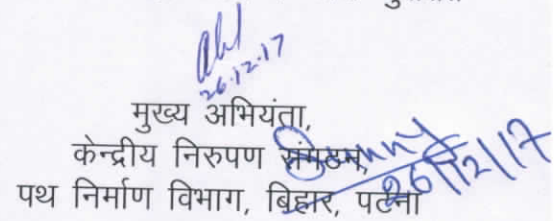 26.12.17
मुख्य अभियंता,
केन्द्रीय निरुपण संगठन,
पथ निर्माण विभाग, बिहार, पटना
26/12/17